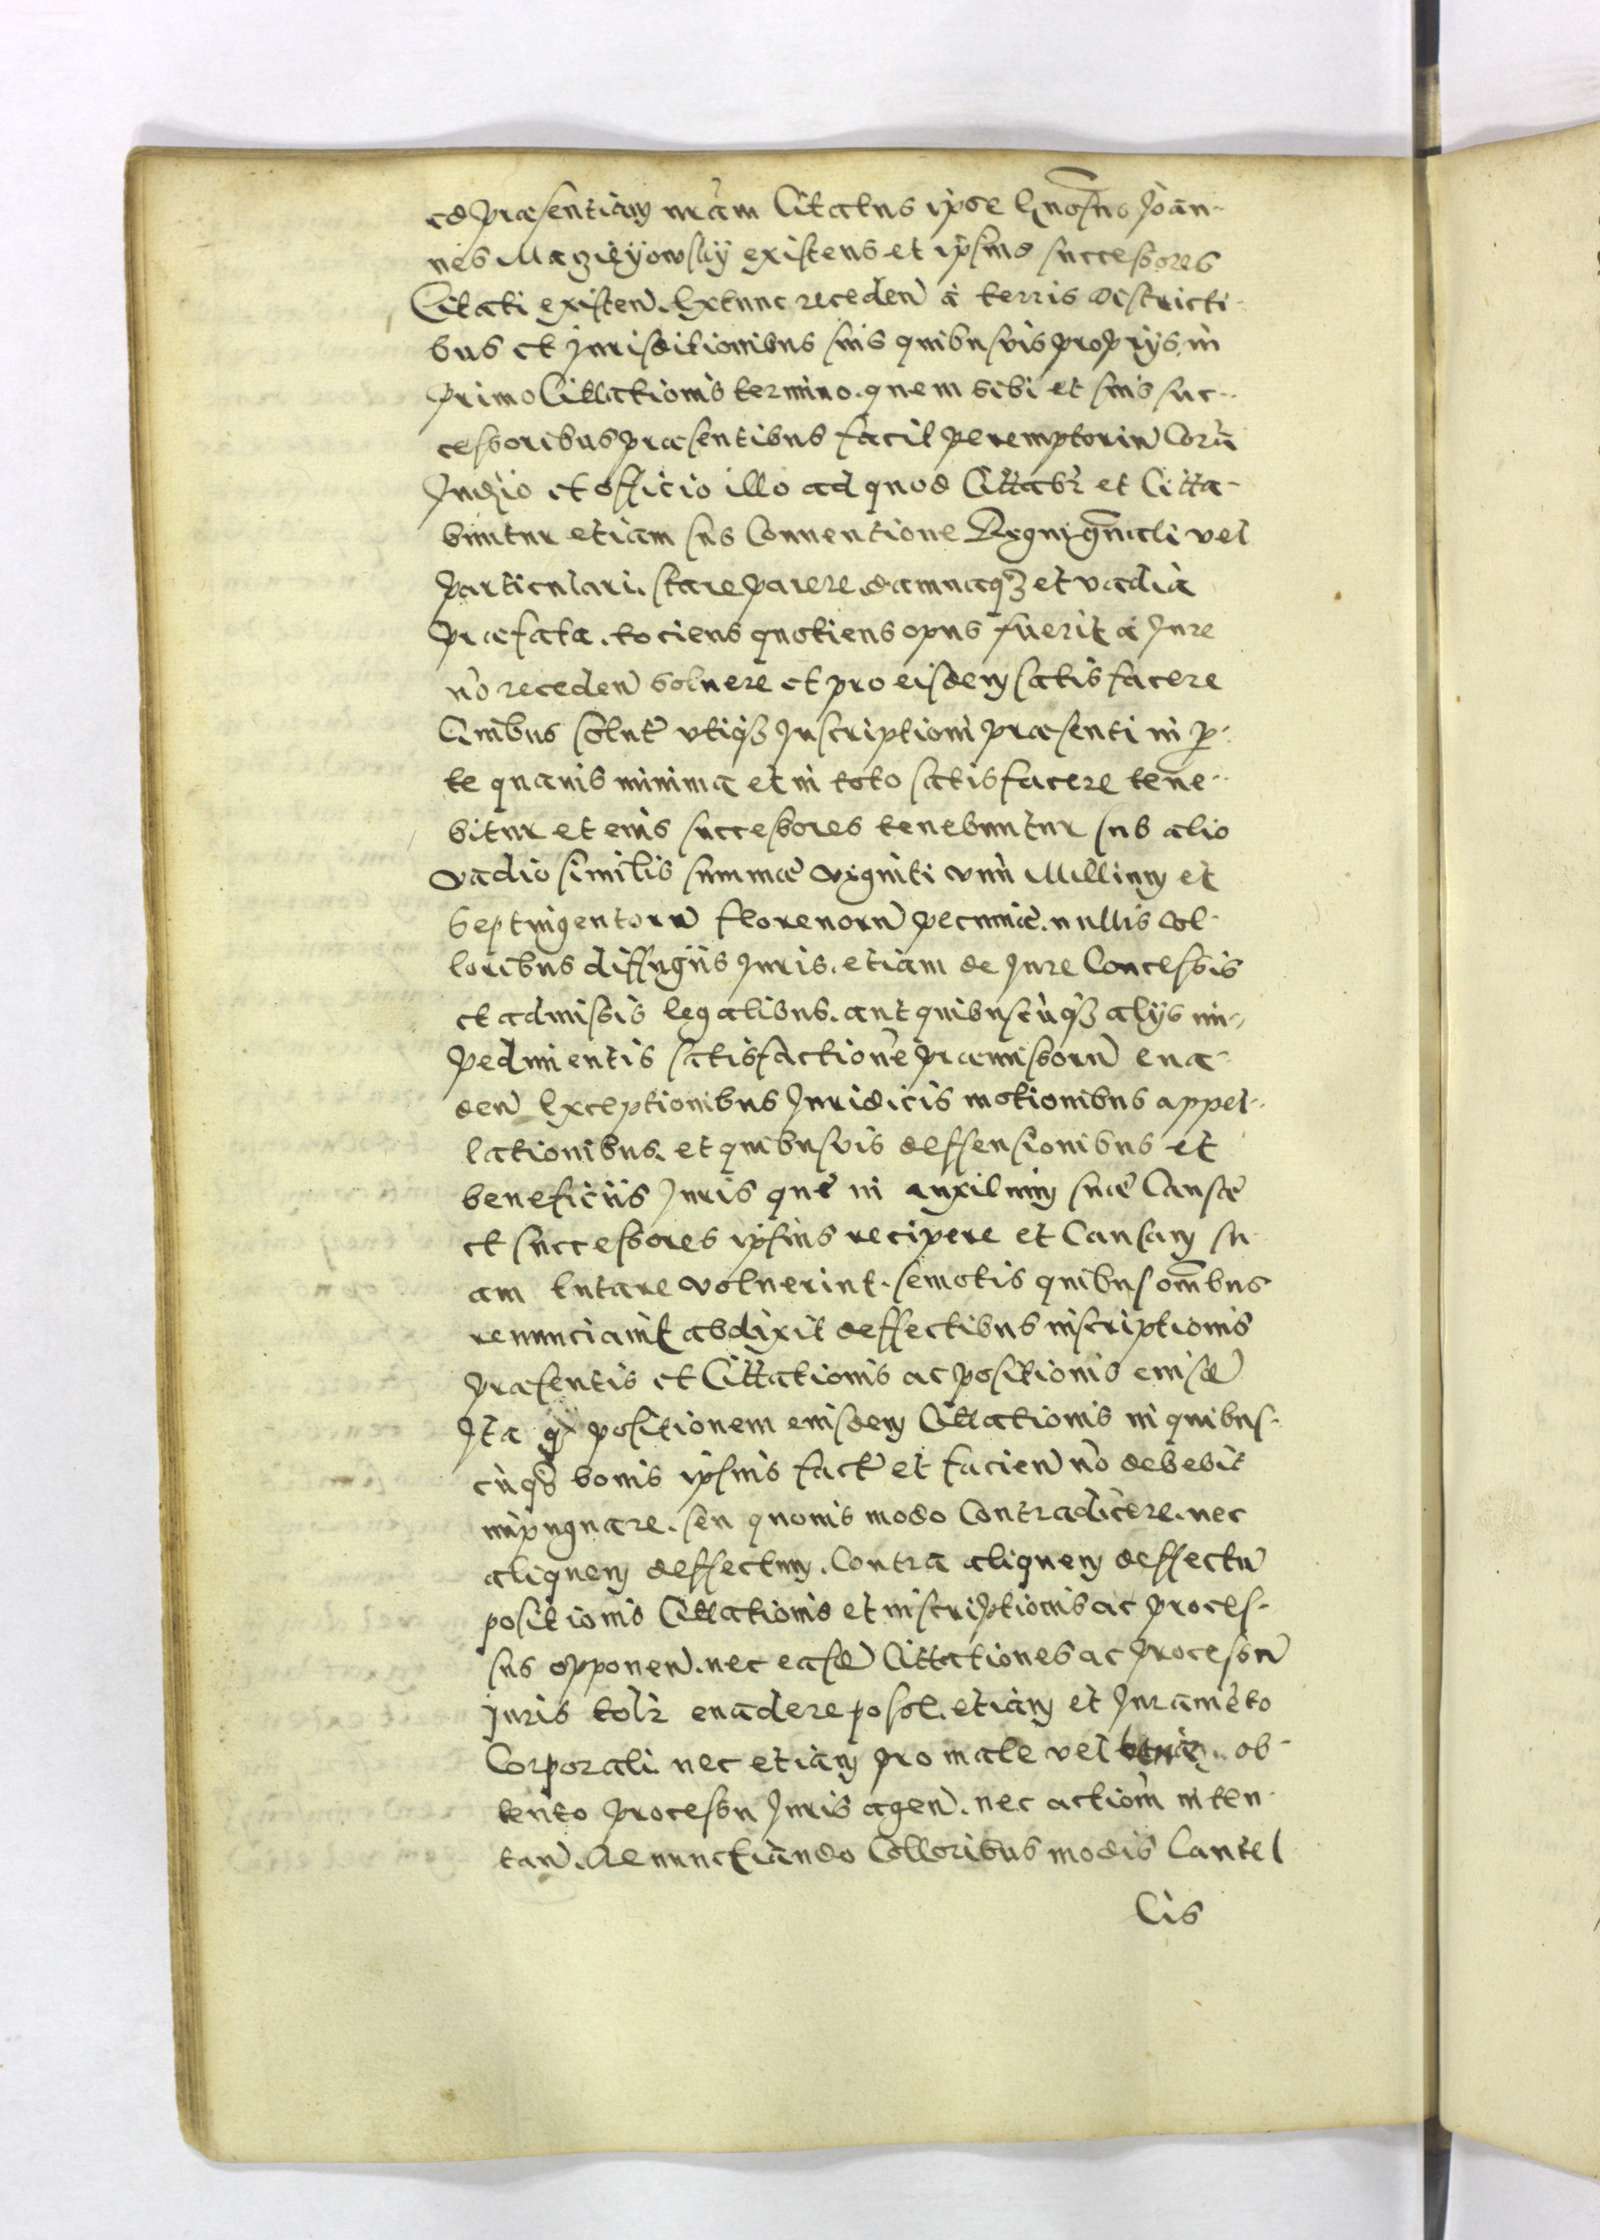 ad præsentiam nrãm Citatus ipse Gnosus Joan-
nes Maczieyowsky existens et ipsius successores
Citati existen. Extunc receden à terris districti-
bus et Jurisditionibus suis quibusvis proprijs, in
primo Cittationis termino. quem sibi et suis suc-
cessoribus præsentibus facit peremptoriu Corã
Judicio et officio illo ad quod Cittabr et Citta-
buntur etiam sub Conventione Regni gñali vel
particulari. stare parere. damnaqз et vadia
præfata. tociens quotiens opus fuerit à Jure
nõ receden solvere et pro eisdem satisfacere
Quibus solut utiqз Inscriptioni præsenti in p-
te quavis minima et in toto satisfacere tene-
bitur et eius successores tenebuntur sub alio
vadio similis summæ viginti unũ Millium et
Septingentorũ florenorũ pecuniæ. nullis Col-
loribus diffugiis Juris. etiam de Jure Concessis
et admissis legalibus. aut quibuscũqз alijs im-
pedimentis satisfactionẽ præmissorũ eva-
den Exceptionibus Juridicis motionibus appel-
lationibus. et quibusvis deffensionibus et
beneficiis Juris quæ in auxilium suæ Causæ
et successores ipsius recipere et Causam su-
am tutare voluerint. semotis quibus omĩbus
renunciavit abdixit deffectibus inscriptionis
præsentis et Cittationis ac positionis eiusd
Jta q positionem eiusdem Cittationis in quibus-
cũqз bonis ipsius fact et facien nõ debebit
impugnare. seu quovis modo Contradicere. nec
aliquem deffectum. Contra aliquem deffectũ
positionis Cittationis et inscriptionis ac proces-
sus opponen. nec easd Cittationes ac processũ
Juris tolr evadere posset. etiam et Juramẽto
Corporali. nec etiam pro male vel ob-
tento processu Juris agen. nec actiom inten-
tan. Renunctiando Colloribus modis Cautel
Lis